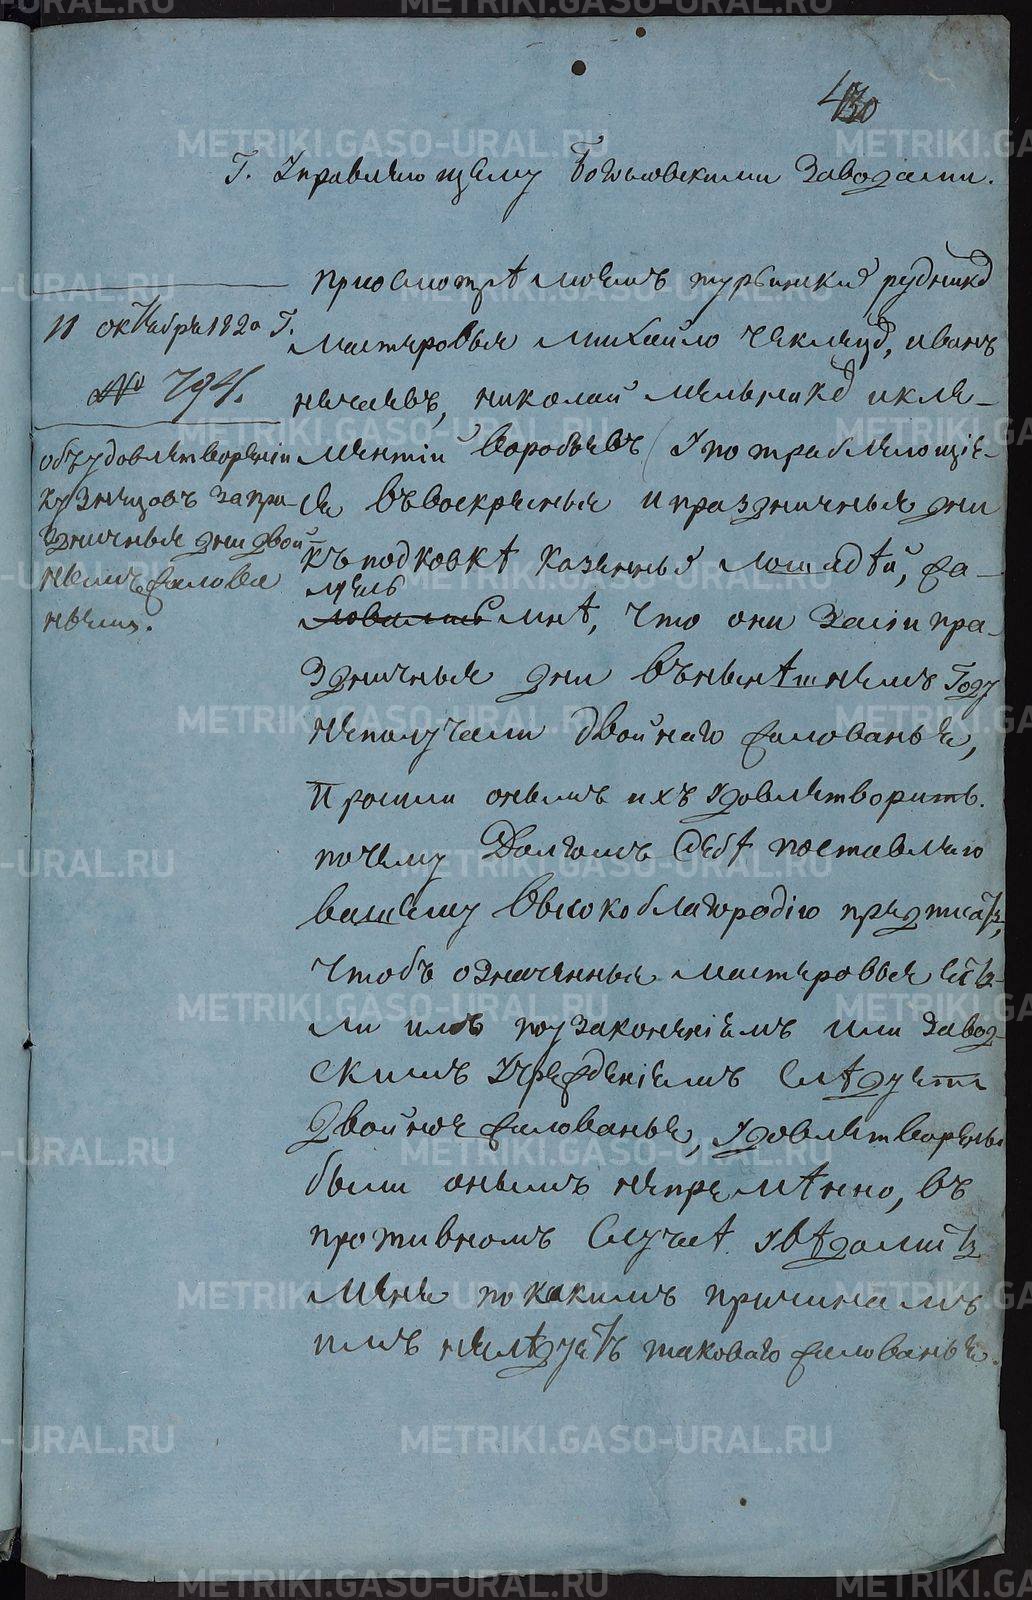 430
Г. Управляющему Богословскими Заводами.
11 октября 1820 Г.
№ 794.
объ удовлетвореніи
кузнецовъ за пра-
здничныя дни двой-
нымъ жалова
ньемъ.
При осмотрѣ моемъ турьинских рудников
мастеровыя михайло Чеклецов, иванъ
нечаевъ, николай мельников и кле-
ментій Воробьевъ (употребляющіе-
ся въ воскресныя и праздничныя дни
къ подковкѣ казенных лошадѣй, жа-
ловались мнѣ, что они за сіи пра-
здничныя дни въ нынѣшнемъ Году
неполучали двойнаго жалованья,
Просили онымъ ихъ удовлетворить.
почему Долгомъ Себѣ поставляю
вашему Высокоблагородію предписать,
Чтобъ означенныя мастеровыя есть-
ли имъ по узаконеніемъ или завод-
скимъ Учрежденіемъ Слѣдуетъ
двойное жалованье, удовлетворены
были онымъ непремѣнно, въ
противномъ Случаѣ увѣдомить
меня по какимъ причинамъ
имъ неслѣдуетъ таковаго жалованья.
METRIKI.GASO-URAL.RU